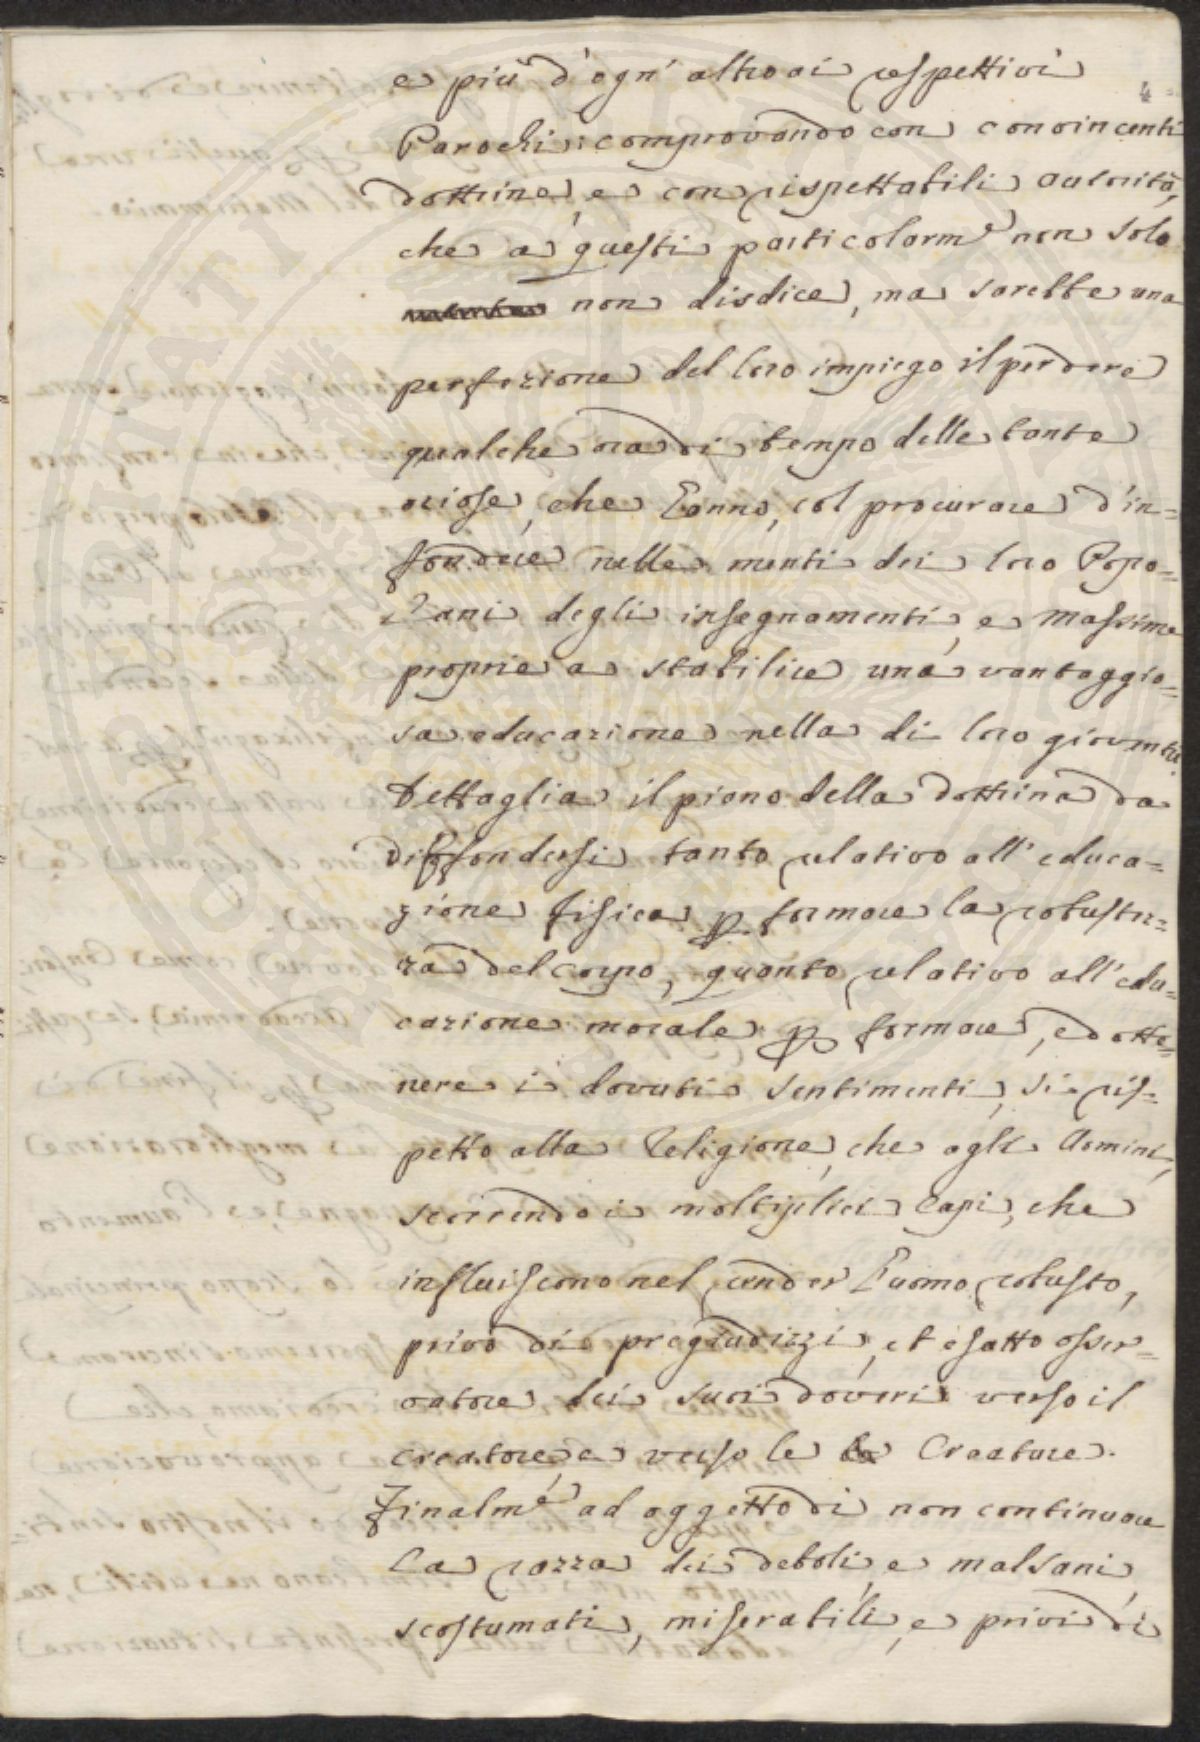 4
e più d'ogn' altro ai respettivi
Parochi: comprovando con convincenti
dottrine, e con rispettabili autorità,
che a questi particolarmᵉ non solo
non disdice, ma sarebbe una
perfezione del loro impiego il perdere
qualche ora di tempo delle tante
oziose, che l'anno, col procurare d'in=
fondere nelle menti dei loro Popo=
lani degli insegnamenti, e massime
proprie a stabilire una vantaggio=
sa educazione nella di loro gioventù.
Dettaglia il piano della dottrina da
diffondersi tanto relativo all'educa=
zione fisica p. formare la robustez=
za del corpo, quanto relativo all'edu=
cazione morale p. formare, ed otte=
nere i dovuti sentimenti, sì ris=
petto alla Religione, che agli Uomini,
scorrendo i moltiplici Capi, che
influiscono nel render l'uomo robusto,
privo di pregiudizzi, et esatto osser=
vatore dei suoi doveri verso il
creatore, e verso le Creature.
Finalmᵉ ad oggetto di non continuare
la razza dei deboli, e malsani,
scostumati, miserabili, e privi di